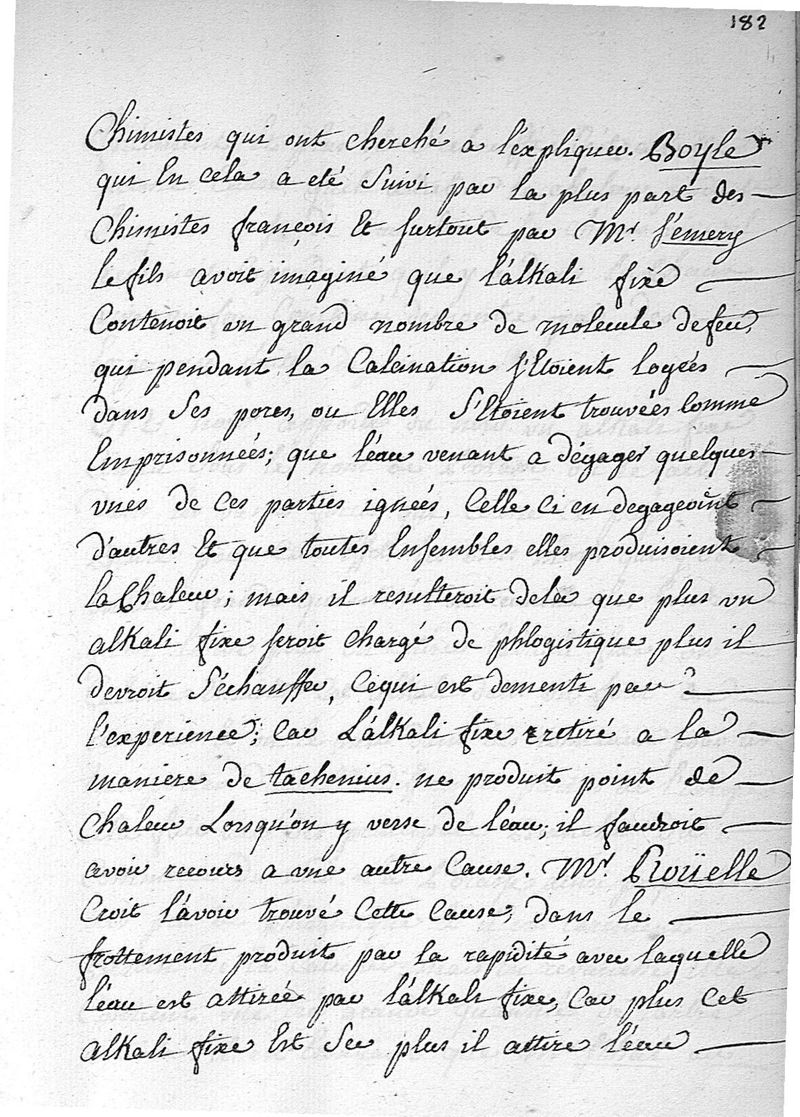 182
Chimistes qui ont cherché a l'expliquer. Boyle
qui En cela a eté Suivi par la plus part des
Chimistes françois Et surtout par Mr. l'emery
le fils avoit imaginé que l'alkali fixe
Contenoit un grand nombre de molecule de feu,
qui pendant la Calcination s'Etoient logées
dans Ses pores, ou Elles S'Etoient trouvées Comme
Emprisonnées; que l'éau venant a dégager quelques
unes de Ces parties ignées, Celle Ci en degageoint
d'autres Et que toutes Ensembles elles produisoient
la Chaleur; mais il resulteroit dela que plus un
alkali fixe seroit Chargé de phlogistique plus il
devroit S'échauffer, Cequi est dementi par
l'experience; Car L'álkali fixe retiré a la
maniere de tachenius. ne produit point de
Chaleur Lorsqu'on y verse de l'éau; il faudroit
avoir recours a une autre Cause. Mr. Roüelle
Croit l'avoir trouvé Cette Cause, dans le
frottement produit par la rapidité avec laquelle
l'éau est attirée par l'álkali fixe, Car plus Cet
alkali fixe Est Sec plus il attire l'éau